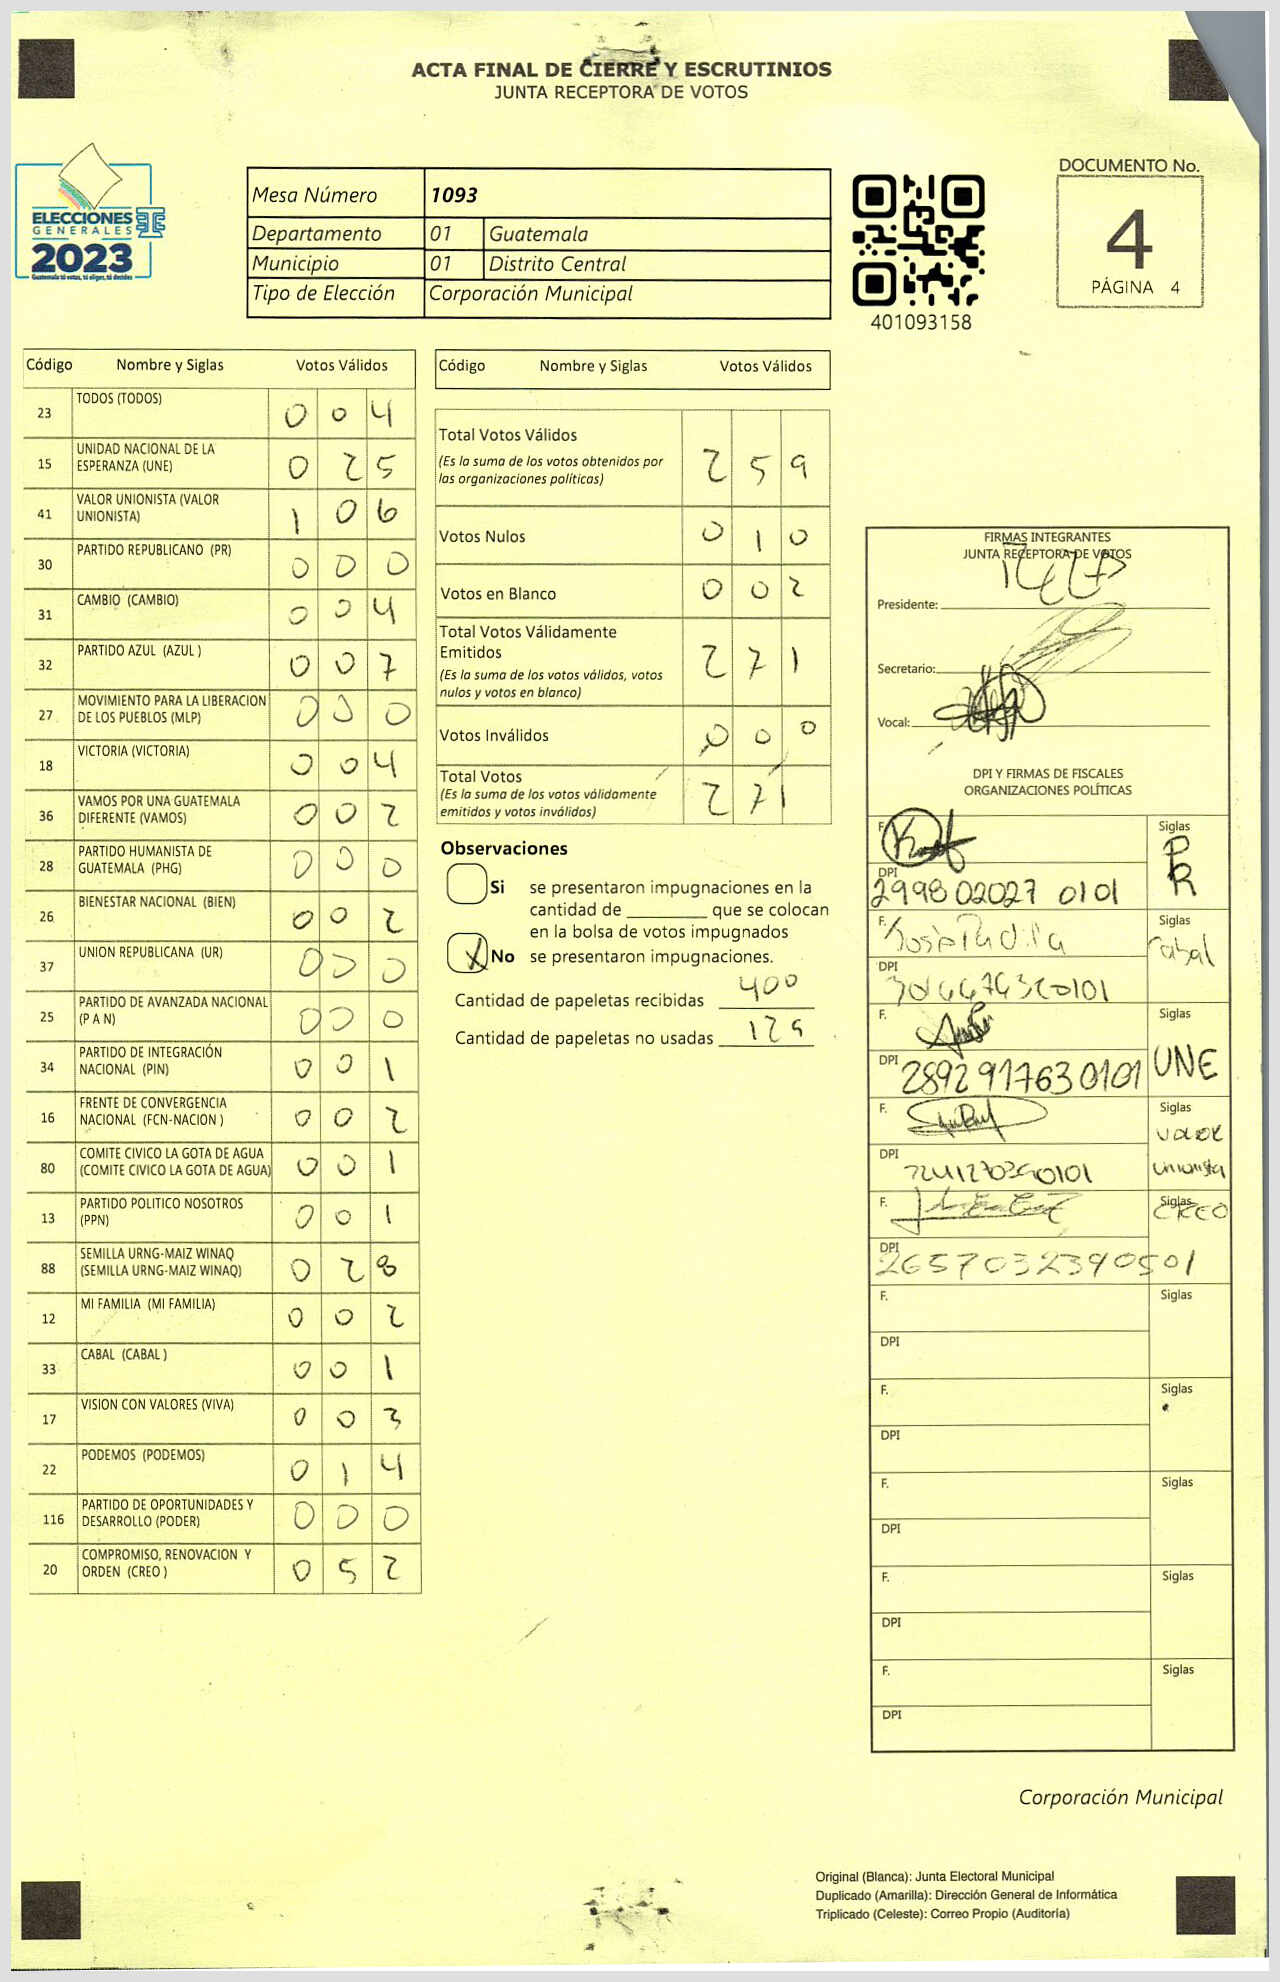 ACTA FINAL DE CIERRE Y ESCRUTINIOS
JUNTA RECEPTORA DE VOTOS
ELECCIONES
GENERALES
2023
Guatemala tú votas, tú eliges, tú decides
Mesa Número 1093
Departamento 01 Guatemala
Municipio 01 Distrito Central
Tipo de Elección Corporación Municipal
401093158
DOCUMENTO No.
4
PÁGINA 4
Código Nombre y Siglas Votos Válidos
23 TODOS (TODOS) 0 0 4
15 UNIDAD NACIONAL DE LA
ESPERANZA (UNE) 0 2 5
41 VALOR UNIONISTA (VALOR
UNIONISTA) 1 0 6
30 PARTIDO REPUBLICANO (PR) 0 0 0
31 CAMBIO (CAMBIO) 0 0 4
32 PARTIDO AZUL (AZUL ) 0 0 7
27 MOVIMIENTO PARA LA LIBERACION
DE LOS PUEBLOS (MLP) 0 0 0
18 VICTORIA (VICTORIA) 0 0 4
36 VAMOS POR UNA GUATEMALA
DIFERENTE (VAMOS) 0 0 2
28 PARTIDO HUMANISTA DE
GUATEMALA (PHG) 0 0 0
26 BIENESTAR NACIONAL (BIEN) 0 0 2
37 UNION REPUBLICANA (UR) 0 0 0
25 PARTIDO DE AVANZADA NACIONAL
(P A N) 0 0 0
34 PARTIDO DE INTEGRACIÓN
NACIONAL (PIN) 0 0 1
16 FRENTE DE CONVERGENCIA
NACIONAL (FCN-NACION ) 0 0 2
80 COMITE CIVICO LA GOTA DE AGUA
(COMITE CIVICO LA GOTA DE AGUA) 0 0 1
13 PARTIDO POLITICO NOSOTROS
(PPN) 0 0 1
88 SEMILLA URNG-MAIZ WINAQ
(SEMILLA URNG-MAIZ WINAQ) 0 2 8
12 MI FAMILIA (MI FAMILIA) 0 0 2
33 CABAL (CABAL ) 0 0 1
17 VISION CON VALORES (VIVA) 0 0 3
22 PODEMOS (PODEMOS) 0 1 4
116 PARTIDO DE OPORTUNIDADES Y
DESARROLLO (PODER) 0 0 0
20 COMPROMISO, RENOVACION Y
ORDEN (CREO ) 0 5 2
Código Nombre y Siglas Votos Válidos
Total Votos Válidos
(Es la suma de los votos obtenidos por
las organizaciones políticas) 2 5 9
Votos Nulos 0 1 0
Votos en Blanco 0 0 2
Total Votos Válidamente
Emitidos
(Es la suma de los votos válidos, votos
nulos y votos en blanco) 2 7 1
Votos Inválidos 0 0 0
Total Votos
(Es la suma de los votos válidamente
emitidos y votos inválidos) 2 7 1
Observaciones
Si se presentaron impugnaciones en la
cantidad de ________ que se colocan
en la bolsa de votos impugnados
X No se presentaron impugnaciones.
Cantidad de papeletas recibidas 400
Cantidad de papeletas no usadas 129
FIRMAS INTEGRANTES
JUNTA RECEPTORA DE VOTOS
Presidente:
Secretario:
Vocal:
DPI Y FIRMAS DE FISCALES
ORGANIZACIONES POLÍTICAS
F. Siglas
PR
DPI
2998 02027 0101
F. Siglas
Cabal
DPI
F. Siglas
UNE
DPI 2892 917630101
F. Siglas
Valor
Unionista
DPI
F. Siglas
CREO
DPI
2657032390501
F. Siglas
DPI
F. Siglas
DPI
F. Siglas
DPI
F. Siglas
DPI
F. Siglas
DPI
Corporación Municipal
Original (Blanca): Junta Electoral Municipal
Duplicado (Amarilla): Dirección General de Informática
Triplicado (Celeste): Correo Propio (Auditoría)